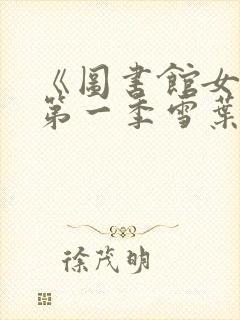 《圖書館女
第一季雪葉
徐茂明